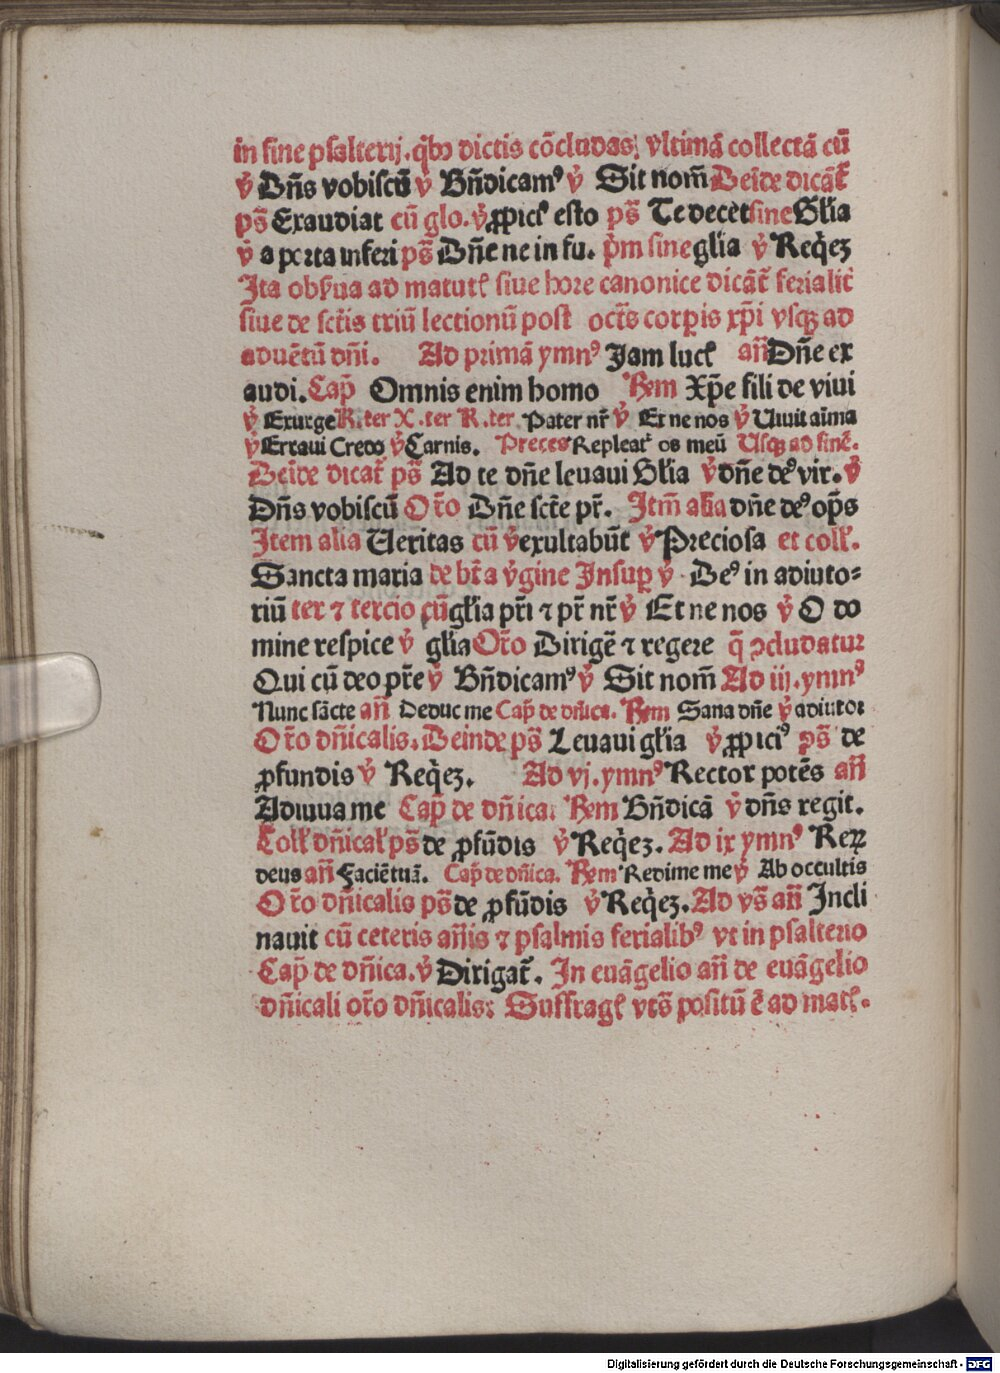 in fine psalterij. qͥbꝫ dictis cōcludas, vltimā collectā cū
v̓ Dn̄s vobiscū v̓ Bn̄dicamꝰ v̓ Sit nom̄ Deīde dicāt̄
ps̄ Exaudiat cū glo. v̓ ꝓpicł esto ps̄ Te decet sine Glīa
v̓ a porta inferi ps̄ Dn̄e ne in fu. pͥm sine glīa v̓ Req̇eꝫ
Ita obs̓ua ad matutł siue hore canonice dicāt̄ ferialit̓
siue de sct̄is triū lectionū post oct̄s corꝑis xp̄i vsqꝫ ad
aduētū dn̄i. Ad primā ymnꝰ Jam lucł an̄ Dn̄e ex
audi. Cap̄ Omnis enim homo Rn̄m Xp̄e fili de viui
v̓ Exurge R. ter X. ter R. ter. Pater nr̄ v̓ Et ne nos v̓ Viuit aīma
v̓ Erraui Credo v̓ Carnis. Preces Repleat̄ os meū Usqꝫ ad finē.
Deīde dicat̄ ps̄ Ad te dn̄e leuaui Glīa v̓ dn̄e deꝰ vir. v̓
Dn̄s vobiscū Or̄o Dn̄e sct̄e pr̄. Itm̄ alīa dn̄e deꝰ op̄s
Item alia Ueritas cū v̓ exultabūt v̓ Preciosa et coll̄.
Sancta maria de bt̄a v̓gine Insuꝑ v̓ Deꝰ in adiuto⸗
riū ter ⁊ tercio cū glīa pr̄i ⁊ pr̄ nr̄ v̓ Et ne nos v̓ O do
mine respice v̓ glīa Or̄o Dirigē ⁊ regere q̄ ꝯcludatur
Qui cū deo pr̄e v̓ Bn̄dicamꝰ v̓ Sit nom̄ Ad iij. ymnꝰ
Nunc sācte an̄ Deduc me Cap̄ de dn̄ica. Rn̄m Sana dn̄e v̓ adiutor
Or̄o dn̄icalis. Deinde ps̄ Leuaui glīa v̓ ꝓpiciꝰ ps̄ de
ꝓfundis v̓ Req̇eꝫ. Ad vj. ymnꝰ Rector potēs an̄
Adiuua me Cap̄ de dn̄ica. Rn̄m Bn̄dicā v̓ dn̄s regit.
Coll̄ dn̄ical̄ ps̄ de ꝓfūdis v̓ Req̇eꝫ. Ad ix ymnꝰ Reꝝ
deus an̄ Faciē tuā. Cap̄ de dn̄ica. Rn̄m Redime me v̓ Ab occultis
Or̄o dn̄icalis ps̄ de ꝓfūdis v̓ Req̇eꝫ. Ad vs̄ an̄ Incli
nauit cū ceteris an̄is ⁊ psalmis ferialibꝰ vt in psalterio
Cap̄ de dn̄ica. v̓ Dirigat̄. In euāgelio an̄ de euāgelio
dn̄icali or̄o dn̄icalis: Suffragł vts̄ positū ē ad matł.
Digitalisierung gefördert durch die Deutsche Forschungsgemeinschaft - DFG